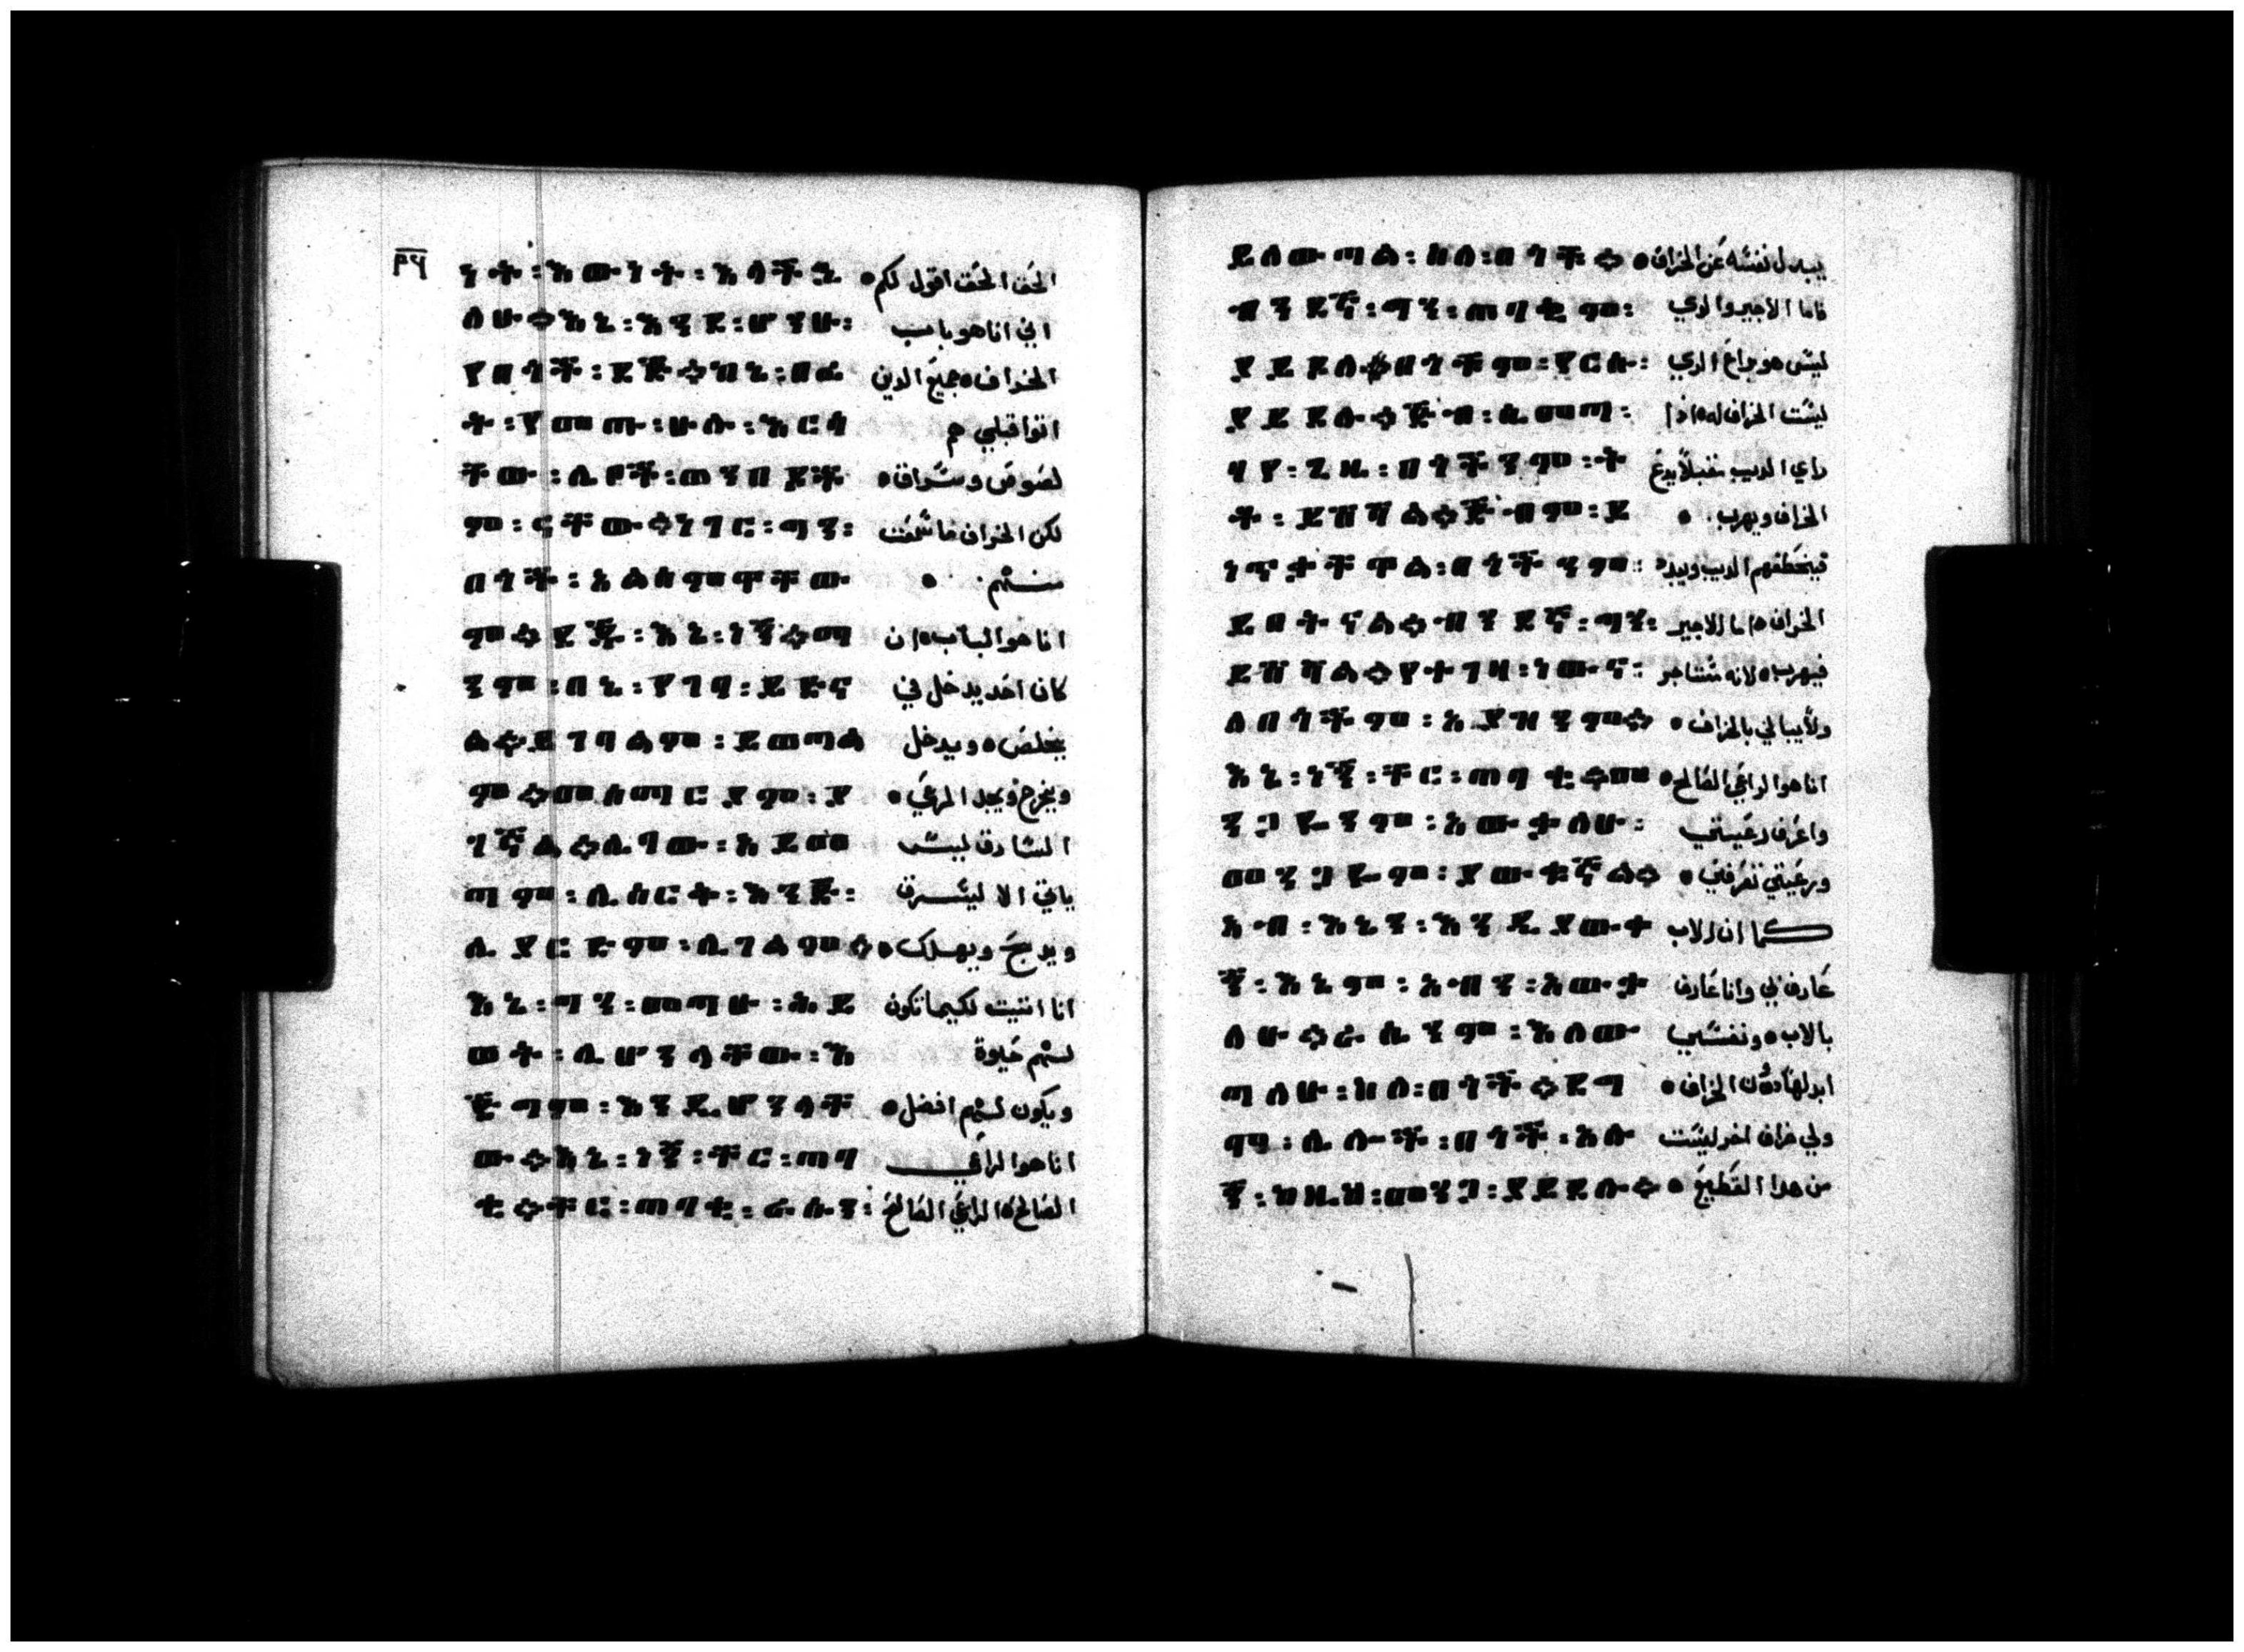 ፳፱
ነት፡እውነት፡እላችኋ الحق الحق اقول لكم
ለሁ።እኔ፡እንደ፡ሆንሁ፡ اني انا هو باب
የበጎች፡ደጅ።ከኔ፡በፊ الخراف جميع الدين
ት፡የመጡ፡ሁሉ፡እርሳ اتوا قبلي هم
ቸው፡ሌቦች፡ወንበዶች لصوص وسراق
ም፡ናቸው።ነገር፡ግን፡ لكن الخراف ما سمعت
በጎች፡አልሰሙዋቸው منهم
ም።ደጅ፡እኔ፡ነኝ።ማ انا هو الباب ان
ንም፡በኔ፡የገባ፡ይድና كان احد يدخل في
ል።ይገባልም፡ይወጣል يخلص ويدخل
ም።መሰማርያም፡ያ ويخرج ويجد المرعي
ገኛል።ሌባው፡አይመ السارق ليس
ጣም፡ሊሰርቅ፡እንጅ፡ ياتي الا ليسرق
ሊያርድም፡ሊገልም። ويدبح ويهلك
እኔ፡ግን፡መጣሁ፡ሕይ انا اتيت لكيما تكون
ወት፡ሊሆንላቸው፡እ لهم حيوة
ጅግም፡እንዲሆንላቸ ويكون لهم افضل
ው።እኔ፡ነኝ፡ቸር፡ጠባ انا هو الراعي
ቂ።ቸር፡ጠባቂ፡ራሱን፡ الصالح الراعي الصالح
ይለውጣል፡ስለ፡በጎች። يبدل نفسه عن الخراف
ብንደኛ፡ግን፡ጠባቂም፡ فاما الاجير والدي
ያይደለ።በጎችም፡የርሱ፡ ليس هو براع الدي
ያይደሉ።ጅብ፡ሲመጣ፡ ليست الخراف له اذا
ባየ፡ጊዜ፡በጎችንም፡ት راي الديب مقبلا يدع
ቶ፡ይሸሻል።ጅብም፡ይ الخراف ويهرب
ነጥቃቸዋል፡በጎችንም፡ فيخطفهم الديب ويبدد
ይበትናል።ብንደኛ፡ግን፡ الخراف اما الاجير
ይሸሻል።የተገዛ፡ነውና፡ فيهرب لانه مستاجر
ለበጎችም፡አያዝንም። ولا يبالي بالخراف
እኔ፡ነኝ፡ቸር፡ጠባቂ።መ انا هو الراعي الصالح
ንጋየንም፡አውቃለሁ፡ واعرف رعيتي
መንጋየም፡ያውቀኛል። ورعيتي تعرفني
አብ፡እኔን፡እንዲያውቀ كما ان الاب
ኝ፡እኔም፡አብን፡አውቃ عارف بي وانا عارف
ለሁ።ራሴንም፡እለው بالاب ونفسي
ጣለሁ፡ስለ፡በጎች።ደግ ابدلها دون الخراف
ሞም፡ሌሎች፡በጎች፡አሉ ولي خراف اخر ليست
ኝ፡ከዚህ፡ያይደሉ። من هدا القطيع